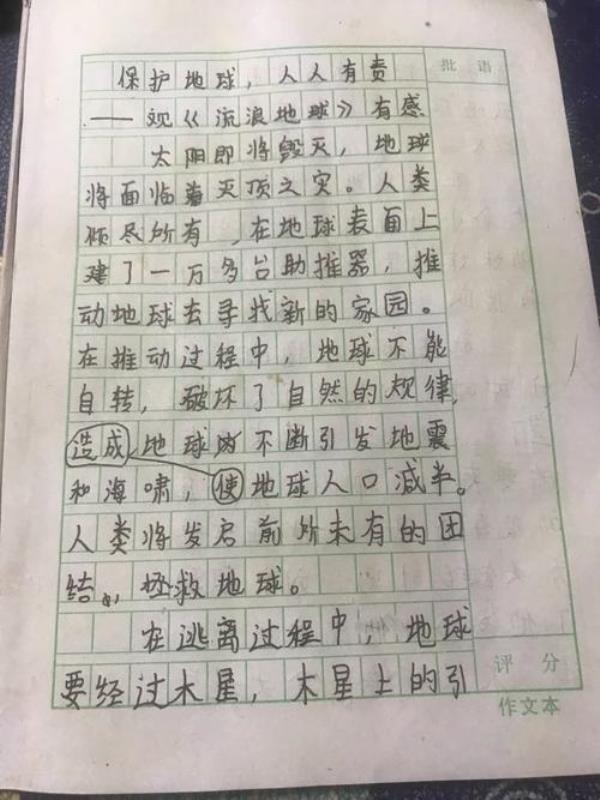 保护地球，人人有责
——观《流浪地球》有感
批语
太阳即将毁灭，地球
将面临着灭顶之灾。人类
倾尽所有，在地球表面上
建了一万多台助推器，推
动地球去寻找新的家园。
在推动过程中，地球不能
自转，破坏了自然的规律，
造成地球不断引发地震
和海啸，使地球人口减半。
人类将发启前所未有的团
结，拯救地球。
在逃离过程中，地球
要经过木星，木星上的引
评分
作文本